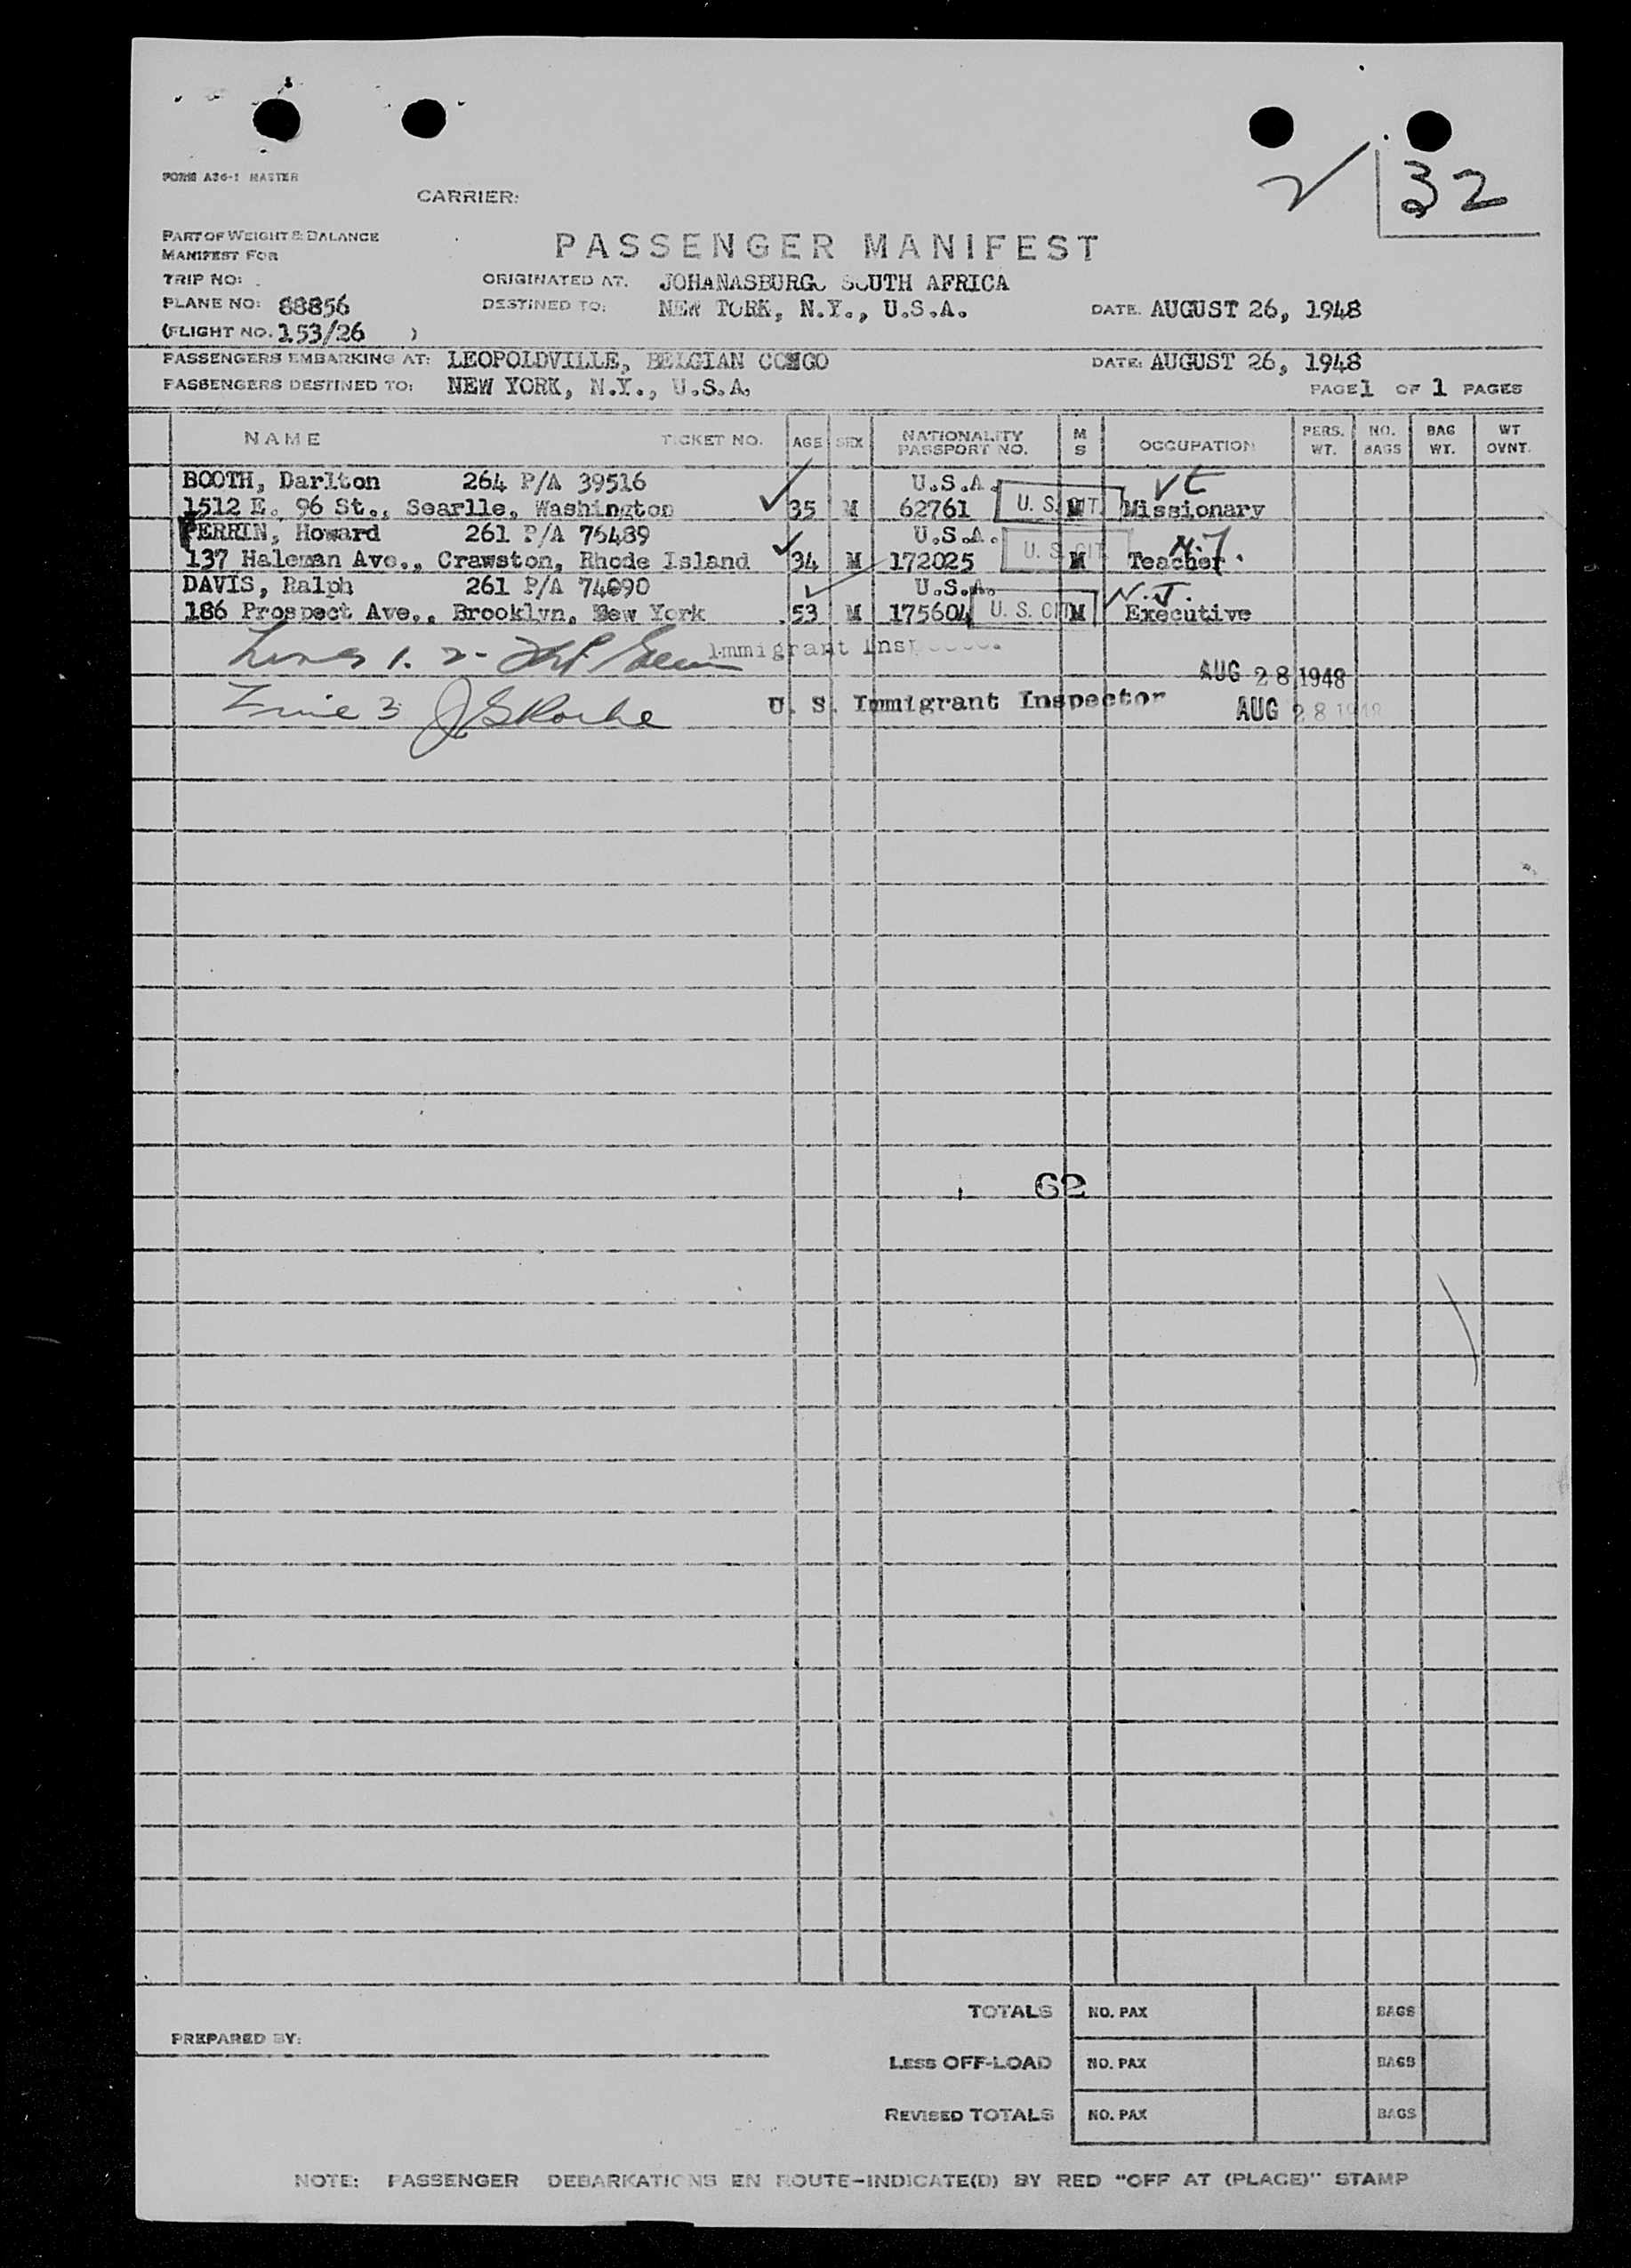 32
FORM A36-1 MASTER
CARRIER:
PART OF WEIGHT & BALANCE
MANIFEST FOR
PASSENGER MANIFEST
TRIP NO:
ORIGINATED AT. JOHANASBURG, SOUTH AFRICA
PLANE NO: 88856
DESTINED TO: NEW YORK, N.Y., U.S.A. DATE. AUGUST 26, 1948
(FLIGHT NO. 153/26 )
PASSENGERS EMBARKING AT: LEOPOLDVILLE, BELGIAN CONGO DATE: AUGUST 26, 1948
PASSENGERS DESTINED TO: NEW YORK, N.Y., U.S.A. PAGE 1 OF 1 PAGES
NAME TICKET NO. AGE SEX NATIONALITY PASSPORT NO. M S OCCUPATION PERS. WT. NO. BAGS BAG WT. WT OVNT.
BOOTH, Darlton 264 P/A 39516 U.S.A. Vt
1512 E. 96 St., Searlle, Washington 35 M 62761 U. S. CIT. M Missionary
PERRIN, Howard 261 P/A 76489 U.S.A. N.J.
137 Haleman Ave., Crawston, Rhode Island 34 M 172025 U. S. CIT. M Teacher
DAVIS, Ralph 261 P/A 74090 U.S.A. N.J.
186 Prospect Ave., Brooklyn, New York 53 M 175604 U. S. CIT M Executive
Lines 1. 2- Immigrant Inspector
AUG 28 1948
Line 3 U. S. Immigrant Inspector AUG 28 1948
62
TOTALS NO. PAX BAGS
PREPARED BY:
LESS OFF-LOAD NO. PAX BAGS
REVISED TOTALS NO. PAX BAGS
NOTE: PASSENGER DEBARKATIONS EN ROUTE-INDICATE(D) BY RED "OFF AT (PLACE)" STAMP